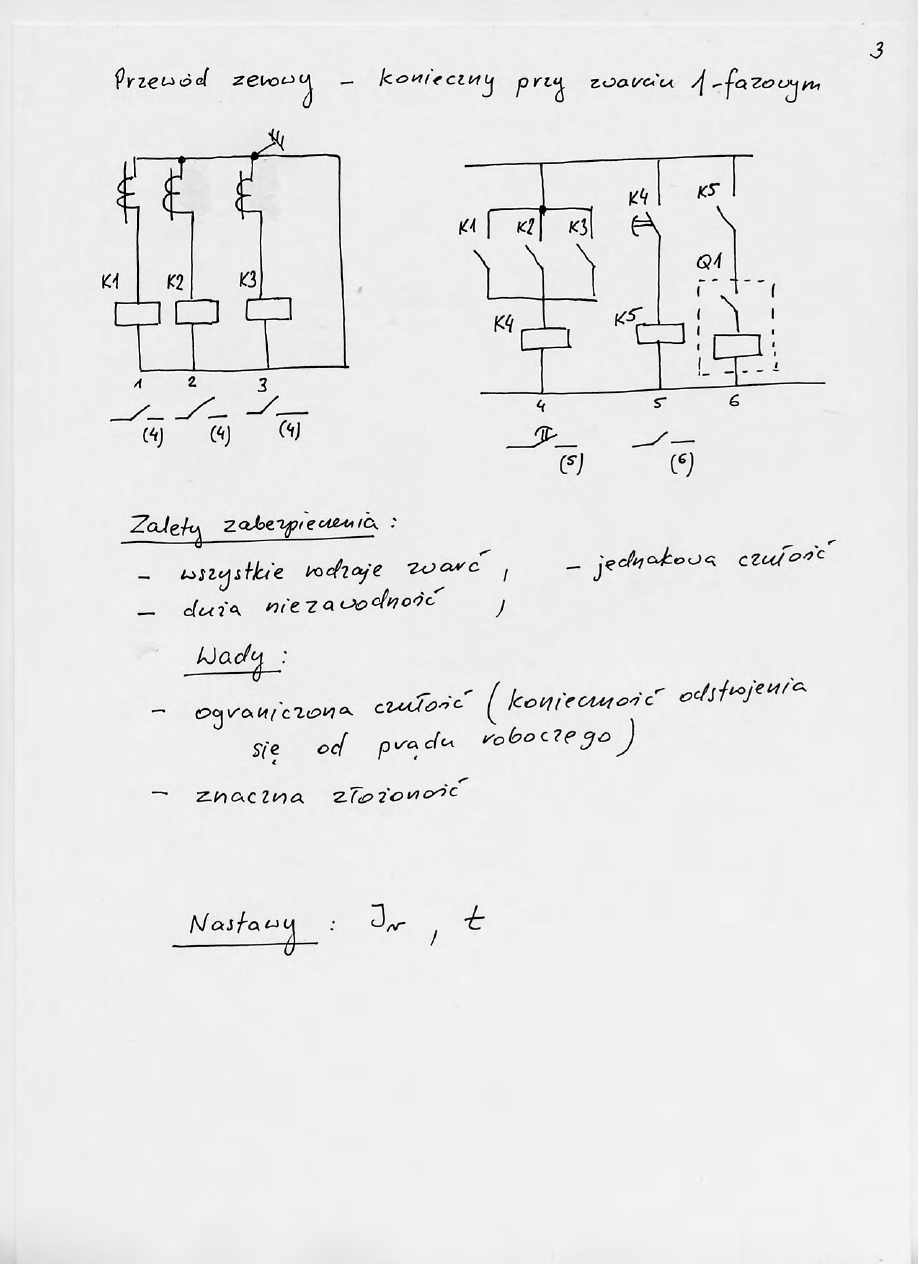 3
Przewód zerowy - konieczny przy zwarciu 1-fazowym
K1 K2 K3
1 2 3
(4) (4) (4)
K1 K2 K3 K4 K5
Q1
K4 K5
4 5 6
(5) (6)
Zalety zabezpieczenia :
- wszystkie rodzaje zwarć , - jednakowa czułość
- duża niezawodność ,
Wady :
- ograniczona czułość (konieczność odstrojenia
się od prądu roboczego)
- znaczna złożoność
Nastawy : Ir , t